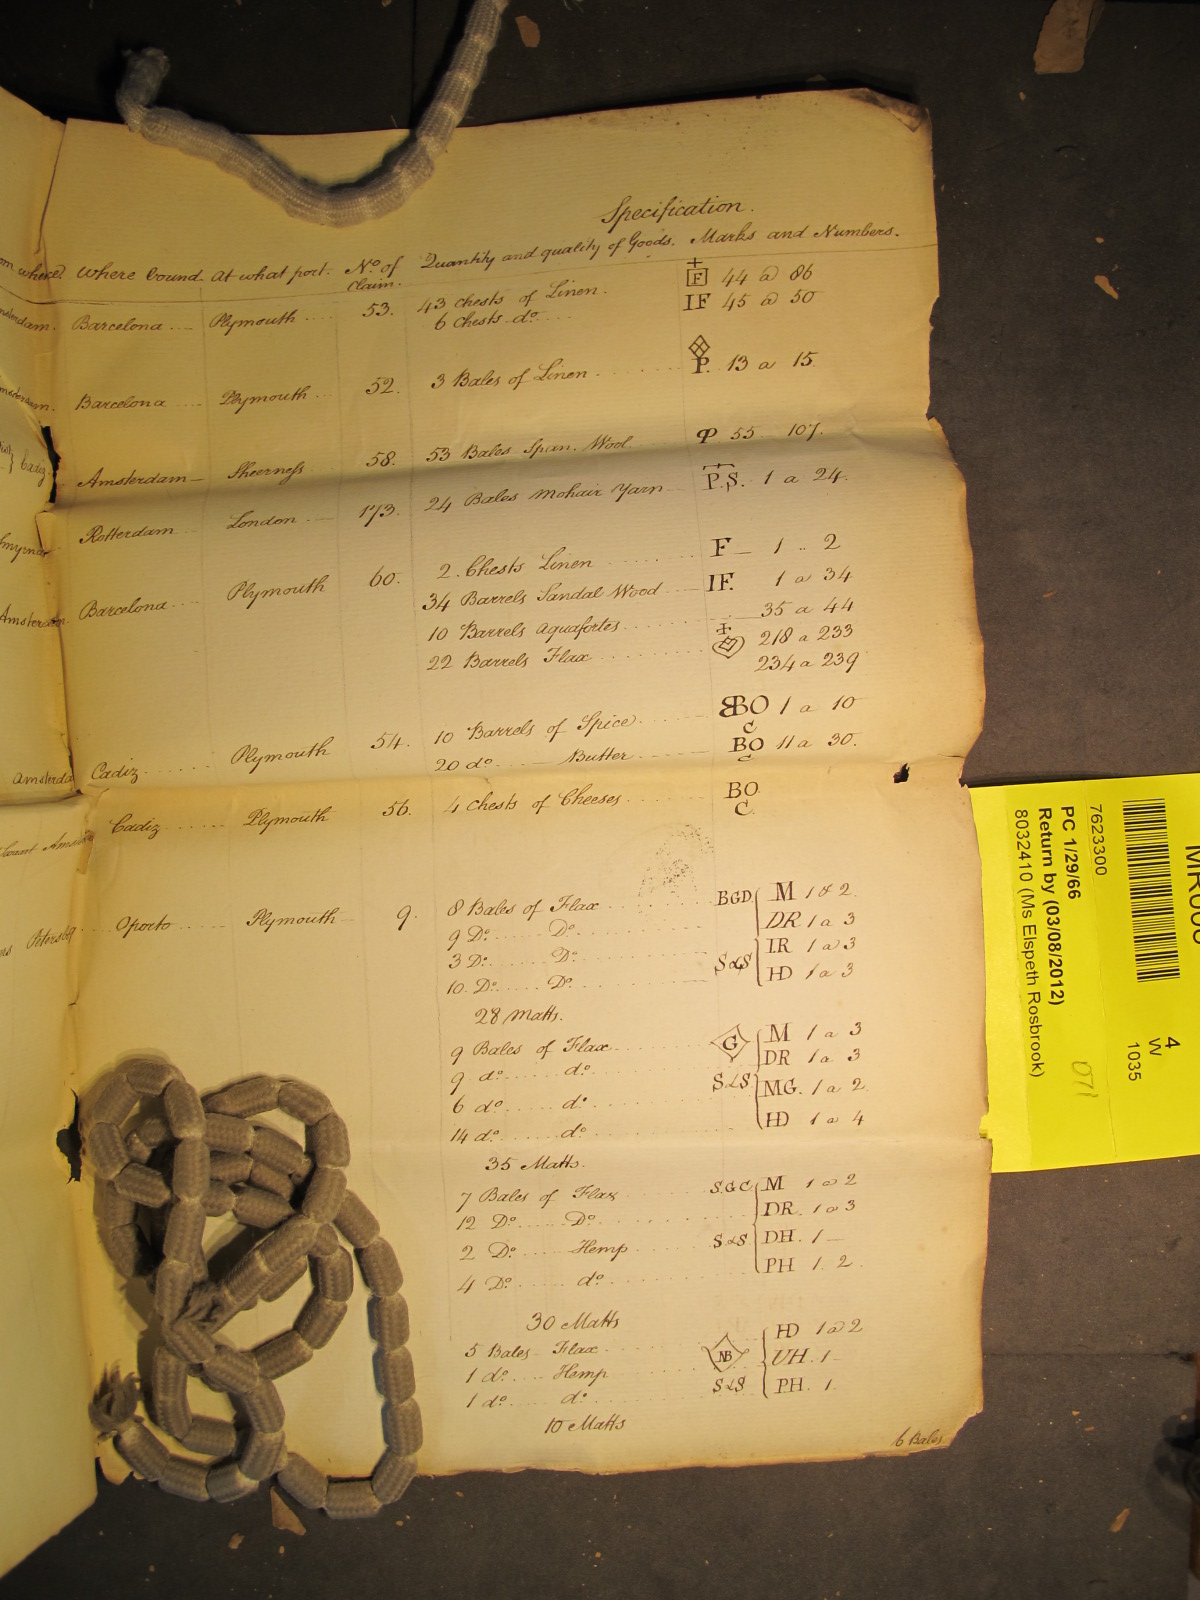 Specification.
where bound. at what port. No. of Claim. Quantity and quality of Goods. Marks and Numbers.
Barcelona Plymouth 53. 43 Chests of Linen. F 44 a 86
6 Chests do. IF 45 a 50
Barcelona Plymouth 52. 3 Bales of Linen P. 13 a 15.
Amsterdam Sheerness 58. 53 Bales Span. Wool P 55 107.
Rotterdam London 173. 24 Bales Mohair Yarn P.S. 1 a 24.
Barcelona Plymouth 60. 2. Chests Linen F 1 .. 2
34 Barrels Sandal Wood IF. 1 a 34
10 Barrels Aquafortes 35 a 44
22 Barrels Flax 218 a 233
234 a 239
Amsterda Cadiz Plymouth 54. 10 Barrels of Spice BBO C 1 a 10
20 do. Butter BO C 11 a 30.
Cadiz Plymouth 56. 4 Chests of Cheeses BO. C.
Oporto Plymouth 9. 8 Bales of Flax BGD M 1 & 2.
9 Do. Do. DR 1 a 3
3 Do. Do. S&S IR 1 a 3
10. Do. Do. HD 1 a 3
28 Matts.
9 Bales of Flax G M 1 a 3
9 do. do. DR 1 a 3
6 do. do. S&S MG. 1 a 2
14 do. do. HD 1 a 4
35 Matts.
7 Bales of Flax S.G.C. M 1 a 2
12 Do. Do. DR. 1 a 3
2 Do. Hemp S&S DH. 1
4 Do. do. PH 1. 2.
30 Matts
5 Bales Flax NB HD 1 a 2
1 do. Hemp VH. 1
1 do. do. S&S PH. 1.
10 Matts
6 Bales
7623300
PC 1/29/66
Return by (03/08/2012)
8032410 (Ms Elspeth Rosbrook)
4
W
1035
071